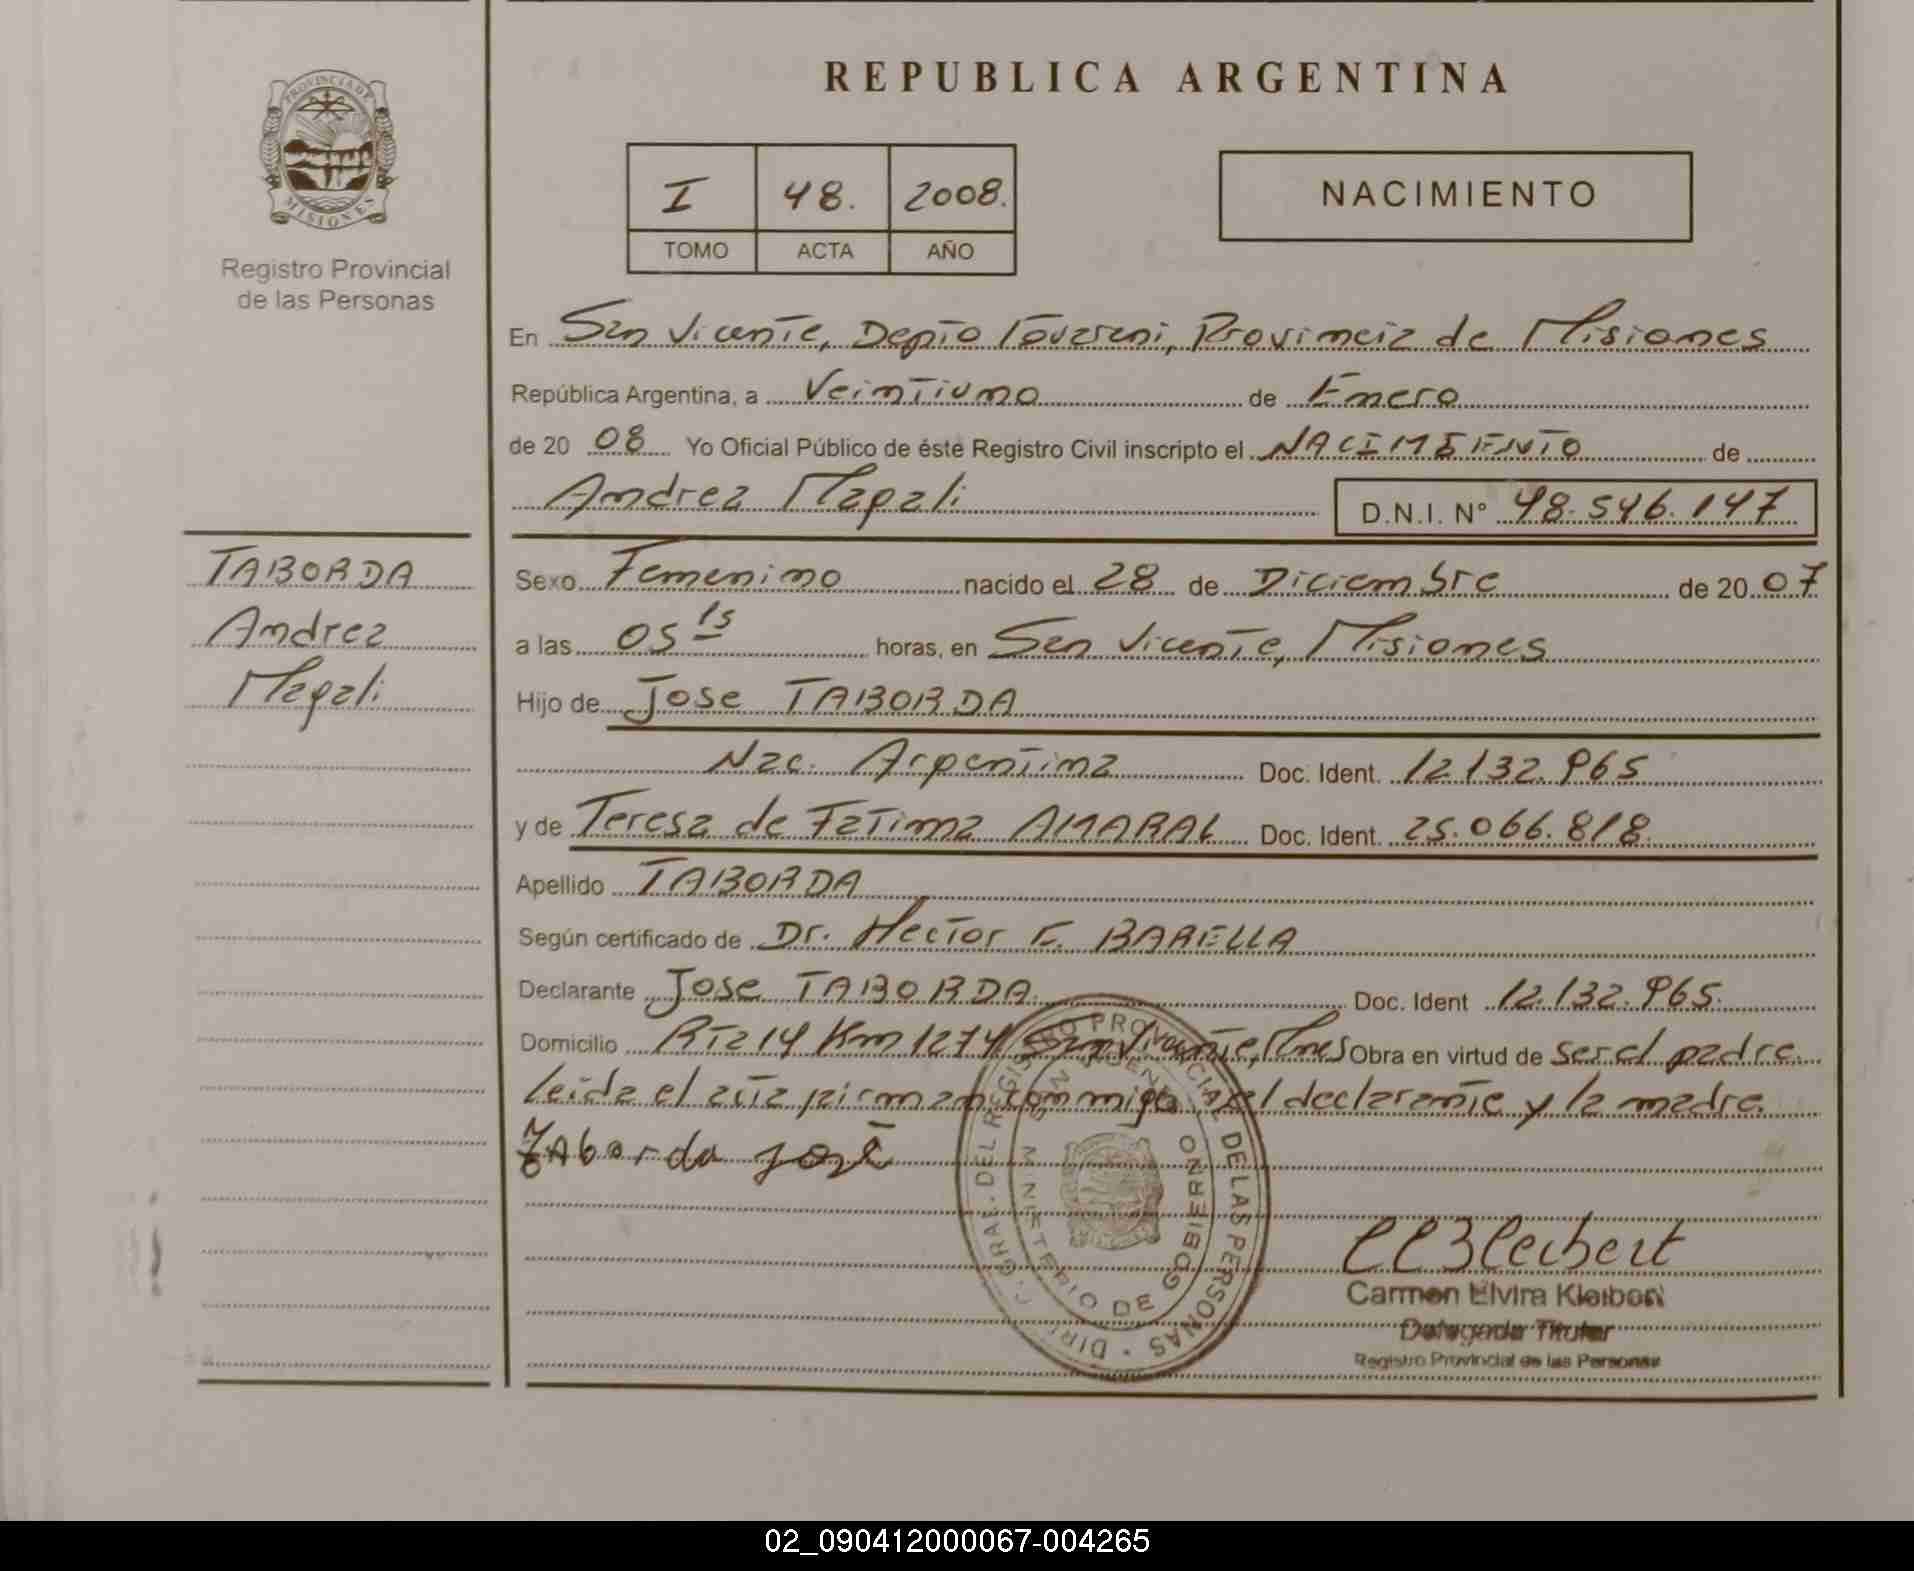 REPUBLICA ARGENTINA
PROVINCIA DE MISIONES
Registro Provincial
de las Personas
I 48. 2008.
TOMO ACTA AÑO
NACIMIENTO
En San Vicente, Depto Guarani, Provincia de Misiones
República Argentina, a Veintiuno de Enero
de 20 08 Yo Oficial Público de éste Registro Civil inscripto el NACIMIENTO de
Andrea Magali D.N.I. N° 48.546.147
TABORDA
Andrea
Magali
Sexo Femenino nacido el 28 de Diciembre de 20 07
a las 05 15 horas, en San Vicente, Misiones
Hijo de Jose TABORDA
Nac. Argentina Doc. Ident. 12.132.965
y de Teresa de Fatima AMARAL Doc. Ident. 25.066.818.
Apellido TABORDA
Según certificado de Dr. Hector F. BARELLA
Declarante Jose TABORDA Doc. Ident 12.132.965.
Domicilio Rta 14 Km 1274 San Vicente, Mnes Obra en virtud de ser el padre.
Leida el acta firman conmigo el declarante y la madre.
TAborda José
DIR. GRAL. DEL REGISTRO PROVINCIAL DE LAS PERSONAS
MINISTERIO DE GOBIERNO
Carmen Elvira Kleibert
Delegada Titular
Registro Provincial de las Personas
02_090412000067-004265